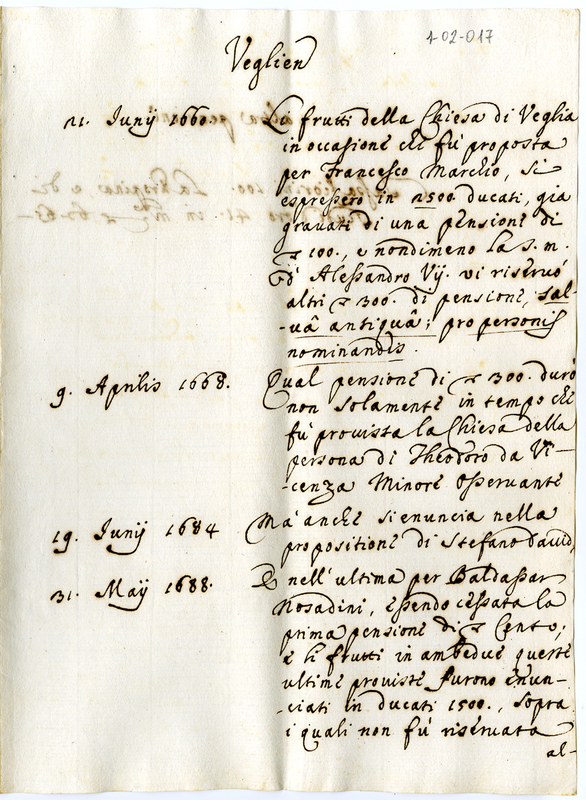 1-02-017
Veglien
21. Junij 1660. Li frutti della Chiesa di Veglia
in occasione che fú proposta
per Francesco Marchio, si
espressero in 2500 ducati, già
gravati di una pensione di
100., e nondimeno la S. m.
d'Alessandro Vij. vi riservò
altri 300. di pensione, sal-
-uâ antiquâ; pro personis
nominandis.
9. Aprilis 1668. Qual pensione di 300. durò
non solamente in tempo che
fú provista la Chiesa della
persona di Theodoro da Vi-
-cenza Minore Osservante
19. Junij 1684 Mà anche si enuncia nella
propositione di Stefano David,
31. Maij 1688. E nell'ultima per Baldassar
Nosadini, essendo cessata la
prima pensione di Cento;
e li frutti in ambedue queste
ultime proviste furono enun-
-ciati in ducati 1500., sopra
i quali non fú riservata
al-